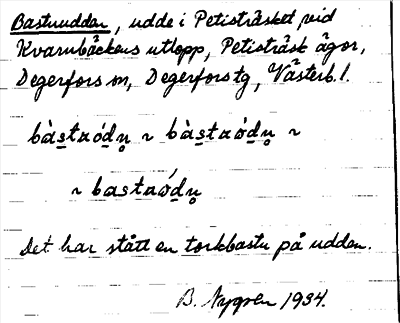 Bastuudden, udde i Petisträsket vid
Kvarnbäckens utlopp, Petisträsk ägor,
Degerfors sn, Degerfors tg, Västerb. l.
bàs̲taód̲n̥ ~ bàs̲taòd̲n̥ ~
~ bas̲taód̲n̥
Det har stått en torkbastu på udden.
B. Nygren 1934.